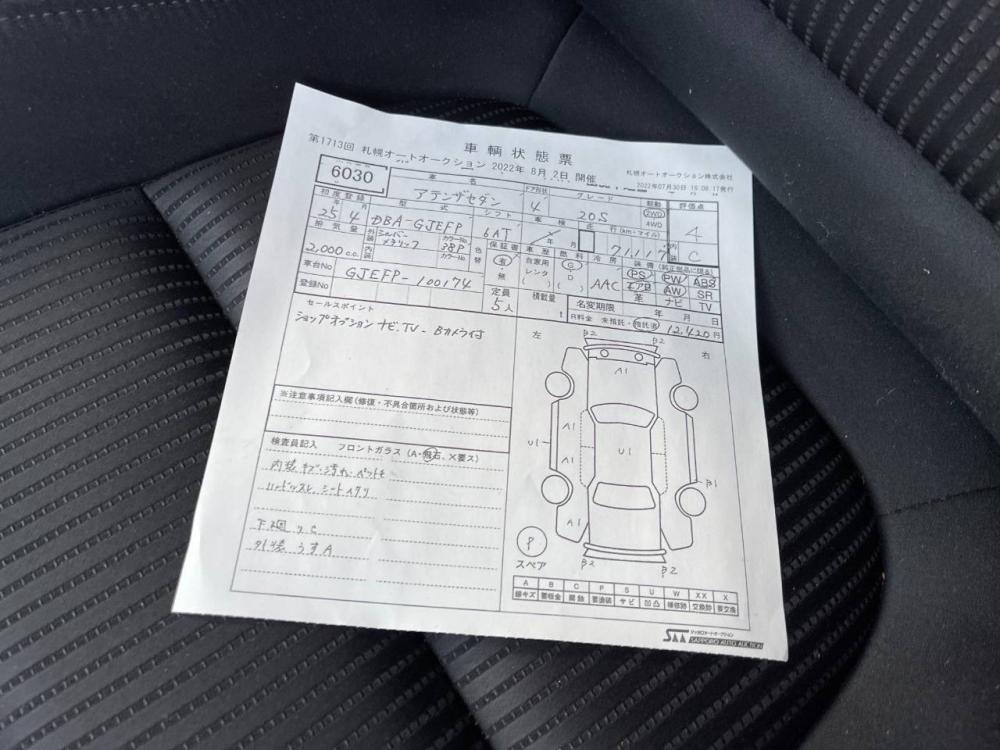 車輌状態票
第1713回 札幌オートオークション 2022年 8月 2日 開催
札幌オートオークション株式会社
2022年07月30日 15:08:17発行
6030
車名 ドア形状 グレード 駆動 評価点
アテンザセダン 4 20S 2WD 4WD 4
初度登録 型式 シフト 車検 走行(km・マイル) 内装
25 4 DBA-GJEFP 6AT 年 月 71,117 C
排気量 外装 シルバーメタリック カラーNo. 38P 色替 保証書 車歴 燃料 冷房 装備 (純正部品に限る)
2,000 c.c. 内装 カラーNo. 有・無 自家用 レンタ ( ) G D ( ) AAC PS PW ABS
エアB AW SR
革 ナビ TV
車台No GJEFP-100174 定員 5人 積載量 t 名変期限 年 月 日
登録No R料金 未預託・預託済 12,420円
セールスポイント
ショップオプション ナビ.TV-Bカメラ付
左 右
B2 B2
A1
A1
U1 U1
A1
B1
A1
P
スペア
B2 B2
※注意事項記入欄(修復・不具合箇所および状態等)
検査員記入 フロントガラス (A・飛石、X要ス)
内装キズ・汚れ・ペットモ
ハンドルスレ シートヘタリ
下廻りC
外装うすA
A B C P S U W XX X
線キズ 要板金 腐蝕 要塗装 サビ 凹凸 補修跡 交換跡 要交換
SAA サッポロオートオークション
SAPPORO AUTO AUCTION